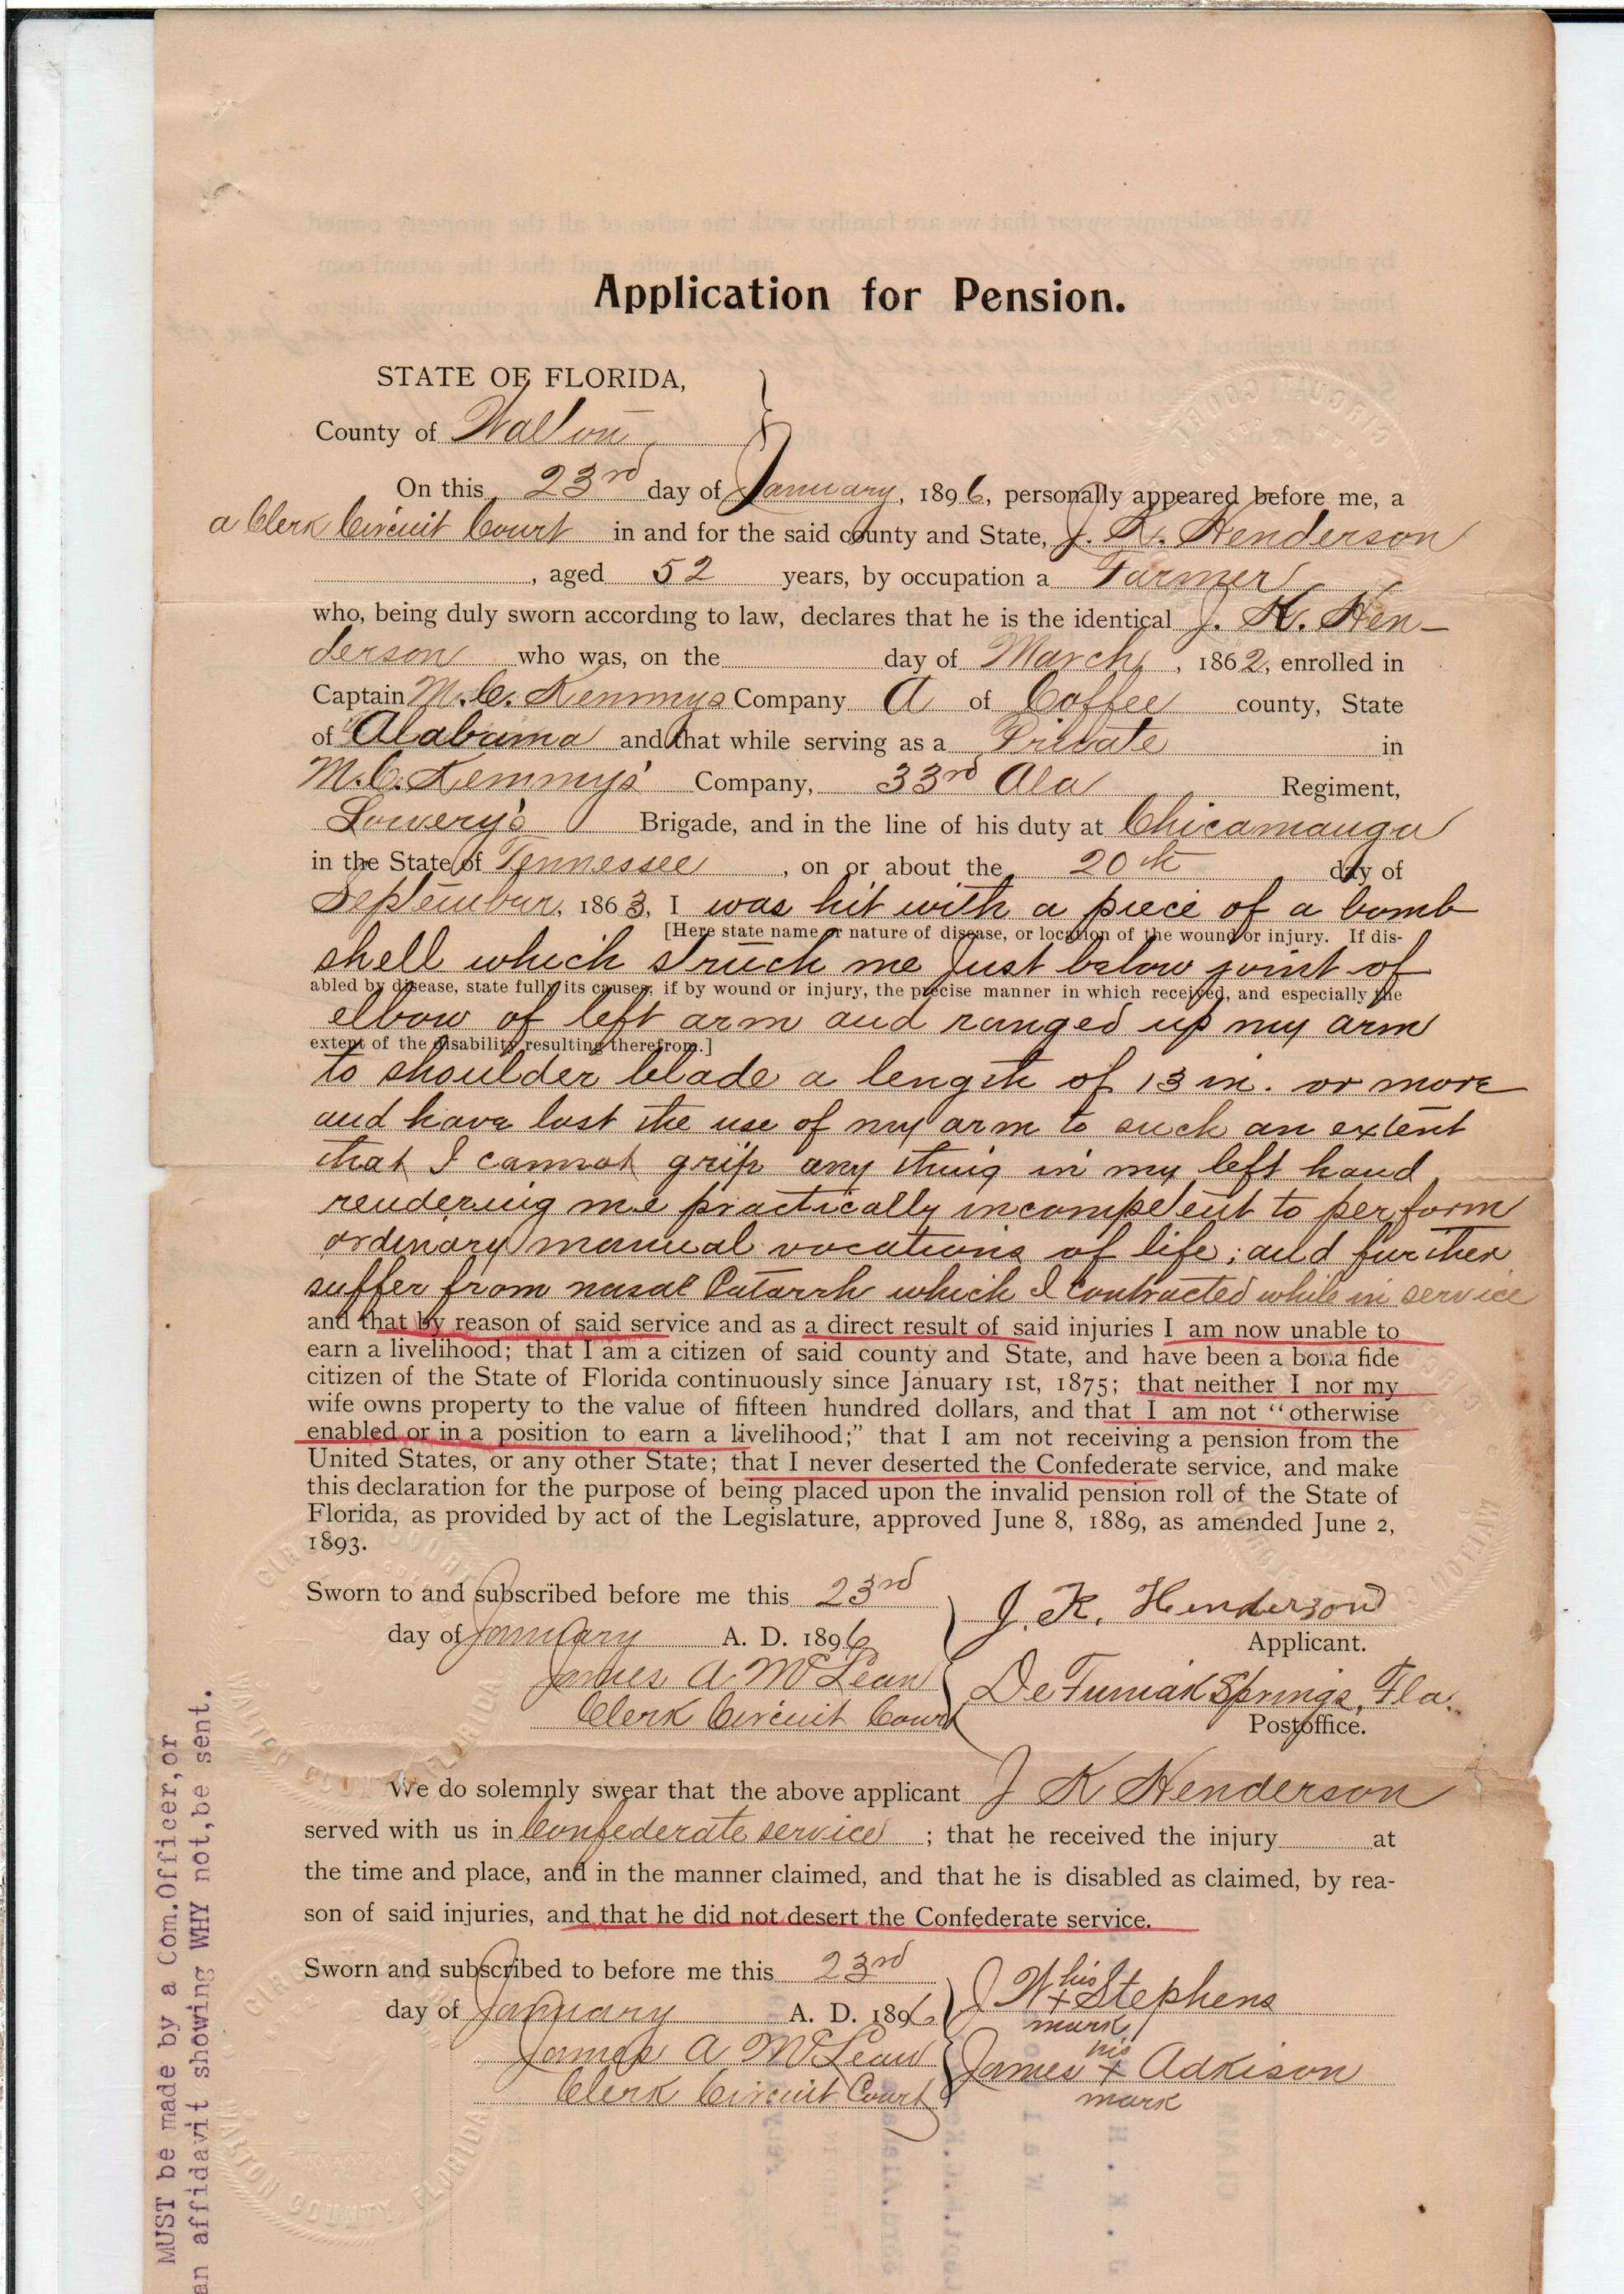 Application for Pension.
STATE OF FLORIDA,
County of Walton
On this 23rd day of January, 1896, personally appeared before me, a
a Clerk Circuit Court in and for the said county and State, J. K. Henderson
, aged 52 years, by occupation a Farmer
who, being duly sworn according to law, declares that he is the identical J. K. Hen-
derson who was, on the day of March, 1862, enrolled in
Captain M. C. Kemmys Company A of Coffee county, State
of Alabama and that while serving as a Private in
M. C. Kemmy's Company, 33rd Ala Regiment,
Lowery's Brigade, and in the line of his duty at Chicamauga
in the State of Tennessee, on or about the 20th day of
September, 1863, I was hit with a piece of a bomb
[Here state name or nature of disease, or location of the wound or injury. If dis-
shell which struck me just below joint of
abled by disease, state fully its causes, if by wound or injury, the precise manner in which received, and especially the
elbow of left arm and ranged up my arm
extent of the disability resulting therefrom.]
to shoulder blade a length of 13 in. or more
and have lost the use of my arm to such an extent
that I cannot grip any thing in my left hand
rendering me practically incompetent to perform
ordinary manual vocations of life; and further
suffer from nasal Catarrh which I contracted while in service
and that by reason of said service and as a direct result of said injuries I am now unable to
earn a livelihood; that I am a citizen of said county and State, and have been a bona fide
citizen of the State of Florida continuously since January 1st, 1875; that neither I nor my
wife owns property to the value of fifteen hundred dollars, and that I am not "otherwise
enabled or in a position to earn a livelihood;" that I am not receiving a pension from the
United States, or any other State; that I never deserted the Confederate service, and make
this declaration for the purpose of being placed upon the invalid pension roll of the State of
Florida, as provided by act of the Legislature, approved June 8, 1889, as amended June 2,
1893.
Sworn to and subscribed before me this 23rd
day of January A. D. 1896
James A McLean
Clerk Circuit Court
J. K. Henderson
Applicant.
De Funiak Springs, Fla.
Postoffice.
We do solemnly swear that the above applicant J K Henderson
served with us in Confederate service; that he received the injury at
the time and place, and in the manner claimed, and that he is disabled as claimed, by rea-
son of said injuries, and that he did not desert the Confederate service.
Sworn and subscribed to before me this 23rd
day of January A. D. 1896
James A McLean
Clerk Circuit Court
J W his x mark Stephens
James his x mark Adkison
MUST be made by a Com. Officer, or
an affidavit showing WHY not, be sent.
WALTON COUNTY FLORIDA